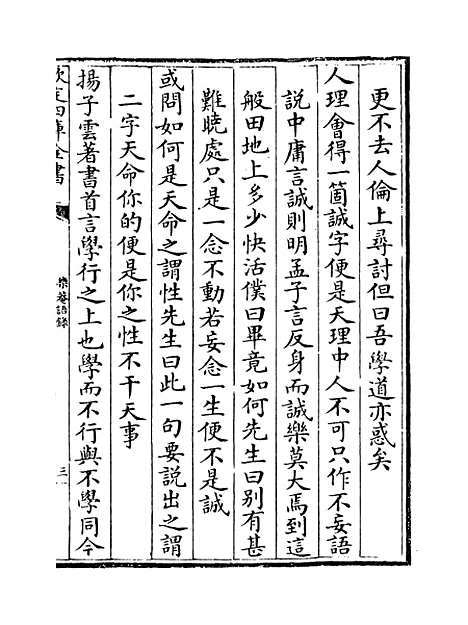 更不去人倫上尋討但曰吾學道亦惑矣
人理會得一箇誠字便是天理中人不可只作不妄語
說中庸言誠則明孟子言反身而誠樂莫大焉到這
般田地上多少快活僕曰畢竟如何先生曰别有甚
難曉處只是一念不動若妄念一生便不是誠
或問如何是天命之謂性先生曰此一句要說出之謂
二字天命你的便是你之性不干天事
揚子雲著書首言學行之上也學而不行與不學同今
欽定四庫全書
樂菴語錄
三